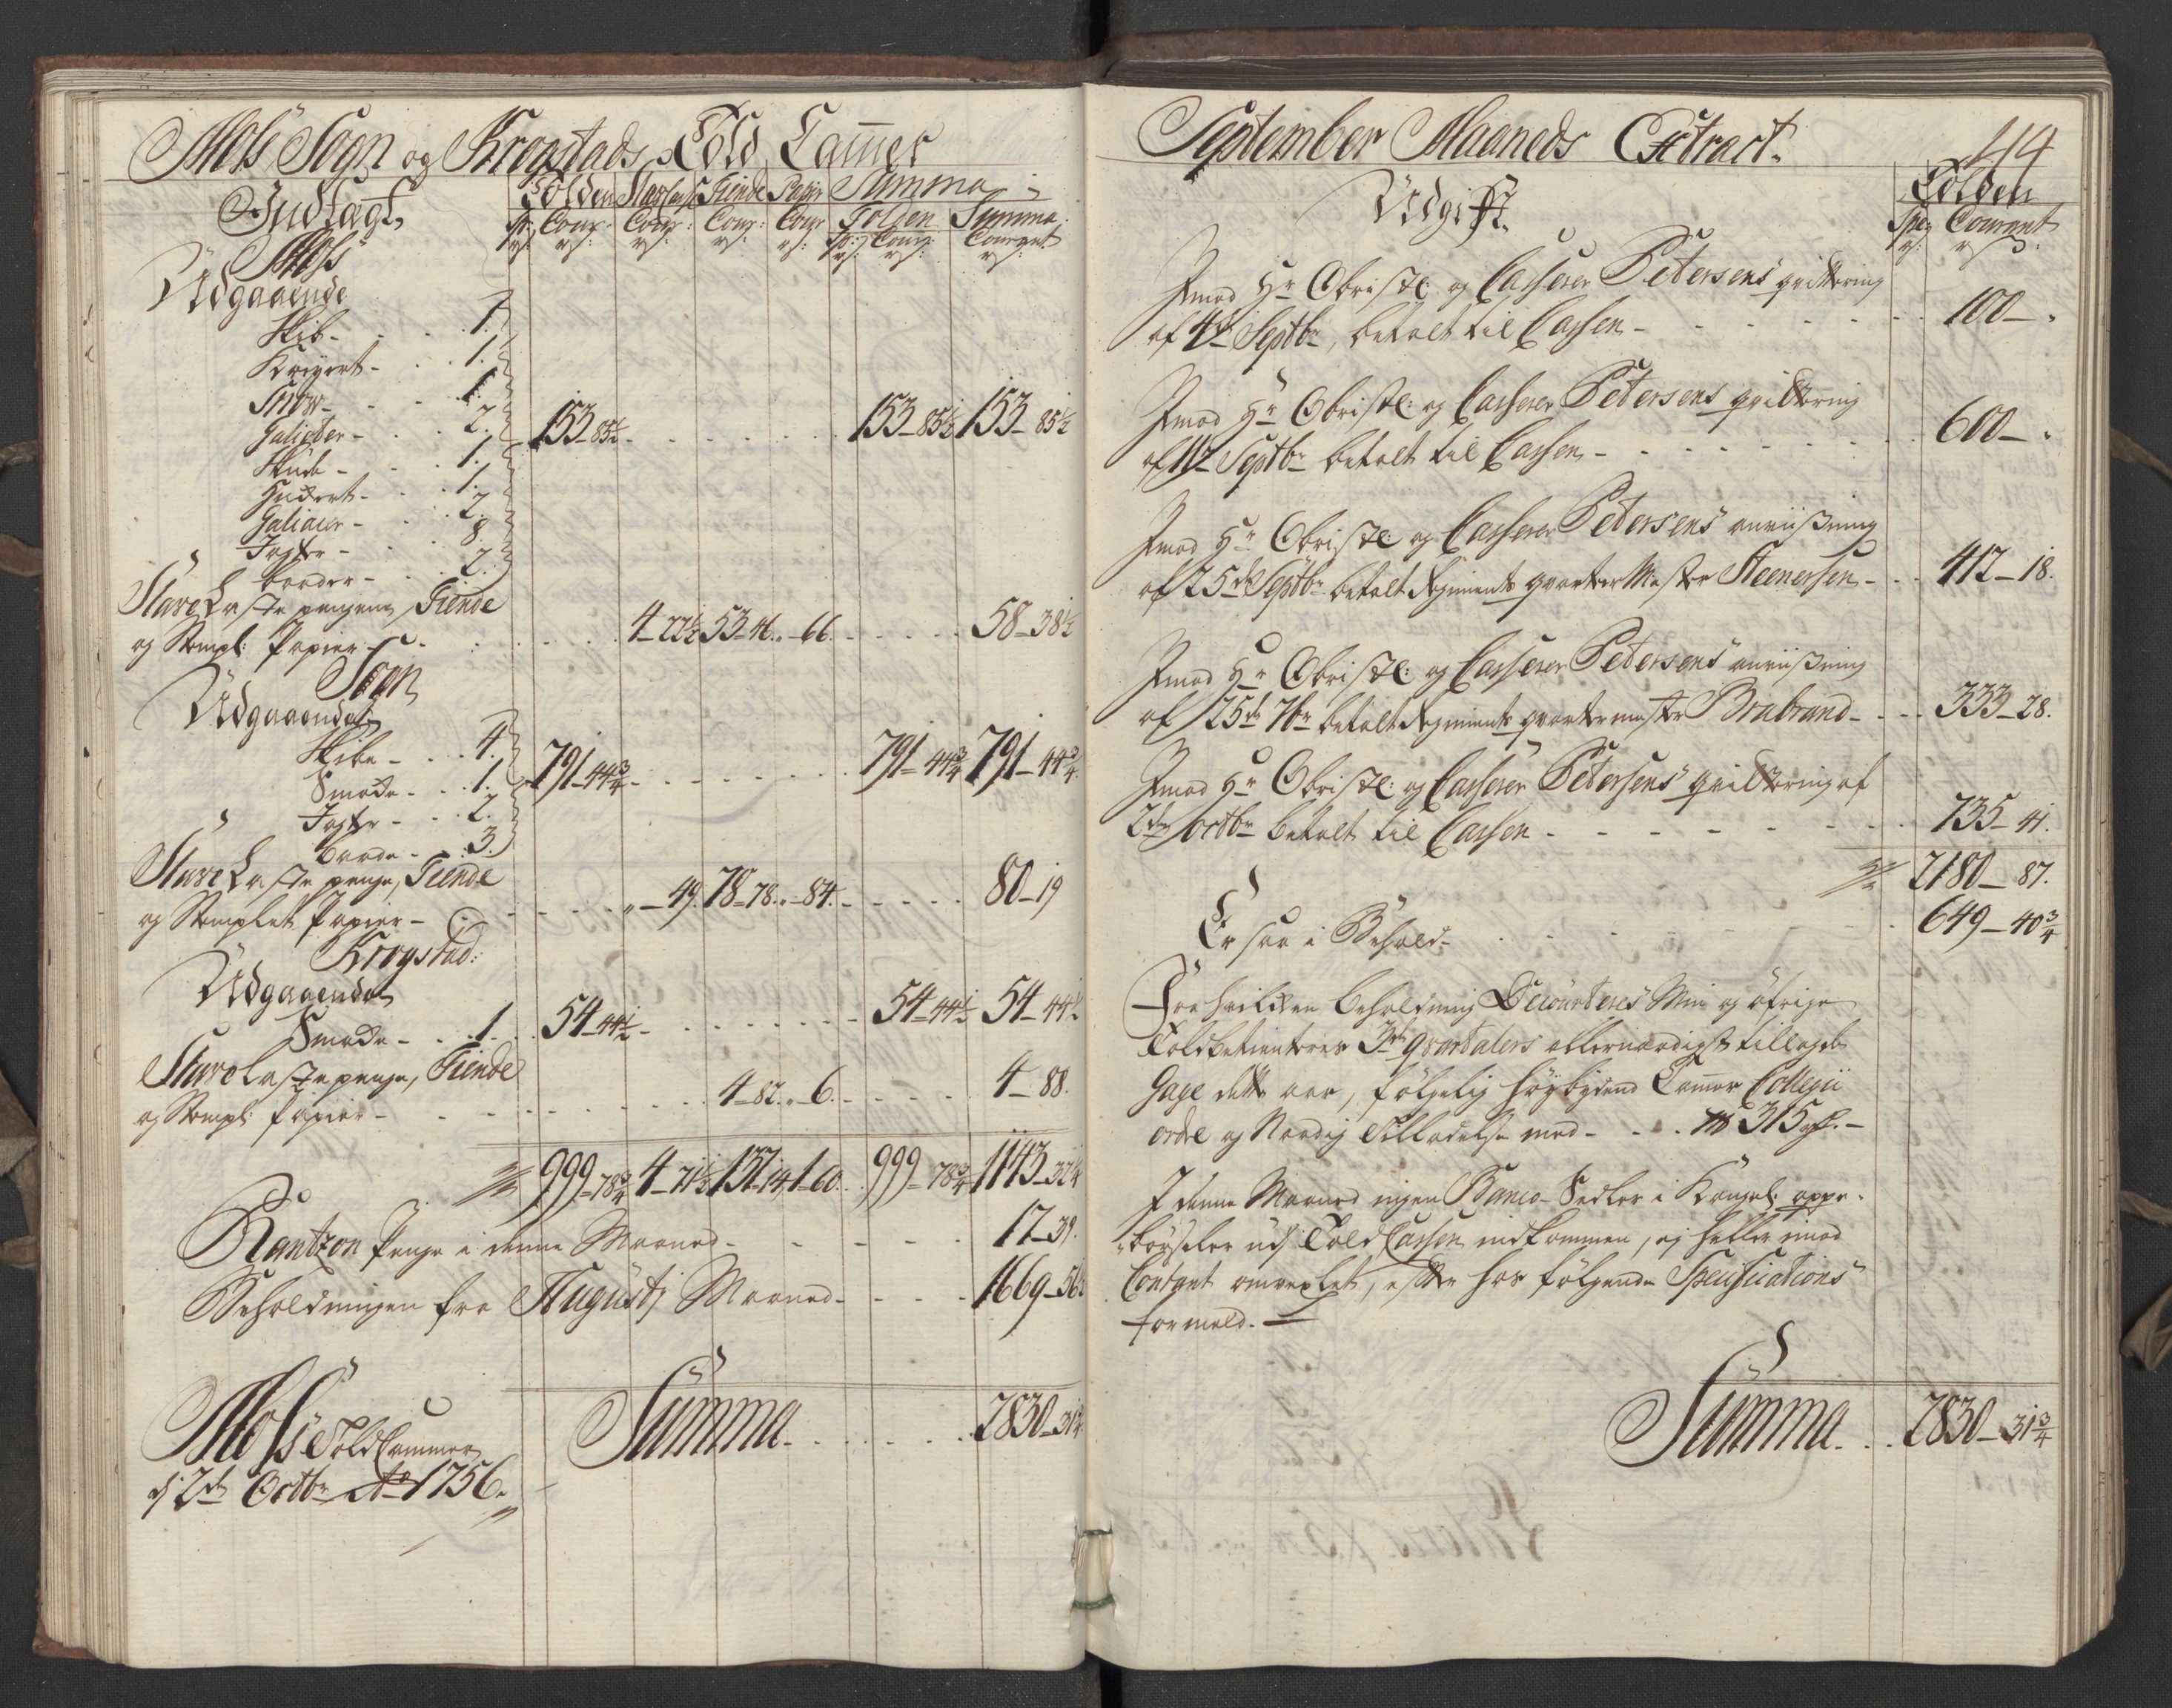 Moss Sogn og Krogstads Told Cammer
Indtægt
Tolden Slavelaste Tiende Papir Summa
Sp: Cour: Cour: Cour: Cour: Tolden Summa
rd: rd: rd: rd: rd: Sp: Cour: Courant
Moss
Udgaaende
Skib - 1.
Kreyert - 1.
Snow - 1.
Galioter - 2. 153 - 85½ 153 - 85½ 153 - 85½
Skude - 1.
Huckert - 1.
Galiacer - 2.
Jagter - 8.
Baader - 2.
Slave Laste pengene, Tiende
og Stempl: Papier - 4 - 22½ 53 - 46. " - 66. 58 - 38½
Sogn
Udgaaende
Skibe - 4.
Smakke - 1. 791 - 44¾ 791 - 44¾ 791 - 44¾
Jagter - 2.
Baade - 3.
Slave Laste penge, Tiende
og Stemplet Papier - " - 49. 78 - 78. " - 84. 80 - 19
Krogstad:
Udgaaende
Smakke - 1. 54 - 44½ 54 - 44½ 54 - 44½
Slave Laste penge, Tiende
og Stempl: Papier - 4 - 82. " - 6. 4 - 88.
999 - 78¾ 4 - 71½ 137 - 14 1 - 60. 999 - 78¾ 1143 - 32¼
Rantzon Penge i denne Maaned - 17 - 39.
Beholdningen fra Augusti Maaned - 1669 - 56
Summa 2830 - 31¾
Moss Told Cammer
d 2de Octbr Ao 1756.
September Maaneds Extract.
414
Udgift.
Tolden
Spe: Courant
Imod Hr Obristl: og Casserer Petersens qvittering
af 4de Septbr, betalt til Cassen - 100 - "
Imod Hr Obristl: og Casserer Petersens qvittering
af 11te Septbr betalt til Cassen - 600 - "
Imod Hr Obristl: og Casserer Petersens anviisning
af 25de Septbr betalt Regiments qvarteer Mester Steenersen - 412 - 18.
Imod Hr Obristl: og Casserer Petersens anviisning
af 25de 7br betalt Regiments qvarteermester Brabrand - 333 - 28.
Imod Hr Obristl: og Casserer Petersens qvittering af
2den Octbr betalt til Cassen - 735 - 41.
2180 - 87.
Er saa i Behold - 649 - 40¾
Fra hvilken Beholdning Decourteres Min og øfrige
Toldbetienteres 3de qvartalers allernaadigst tillagde
Gage dette aar, følgelig høybydend Cammer Collegii
ordre og Naadig Tilladelse med - 315 rd. -
I denne Maaned ingen Banco-Sedler i Kongel: oppe-
børseler udj Told Cassen indkommen, ej heller imod
Contant omvexlet, efter hos følgende Specifications
formeld. -
Summa 2830 - 31¾